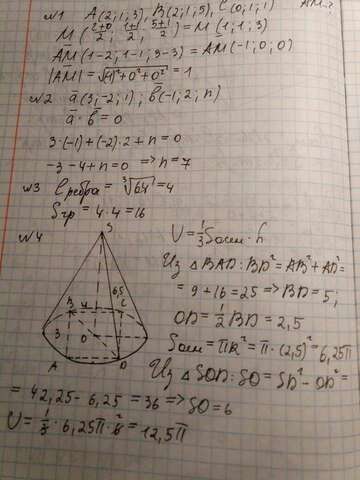 №1 A(2;1;3), B(2;1;5), C(0;1;1) AM-?
M(2+0/2; 1+1/2; 5+1/2) = M(1;1;3)
AM(1-2; 1-1; 3-3) = AM(-1;0;0)
|AM| = √(-1)²+0²+0² = 1
№2 a(3;-2;1); b(-1;2;n)
a·b = 0
3·(-1)+(-2)·2+n=0
-3-4+n=0 => n=7
№3 ℓребра = ∛64 = 4
Sгр = 4·4=16
№4
S
6,5
B 4 C
3 O
A D
V = 1/3 Sосн·h
Из △BAD: BD² = AB²+AD² =
= 9+16=25 => BD=5;
OD = 1/2 BD = 2,5
Sосн = πR² = π·(2,5)² = 6,25π
Из △SOD: SO² = SD² - OD² =
= 42,25 - 6,25 = 36 => SO=6
V = 1/3 · 6,25π · 6 = 12,5π